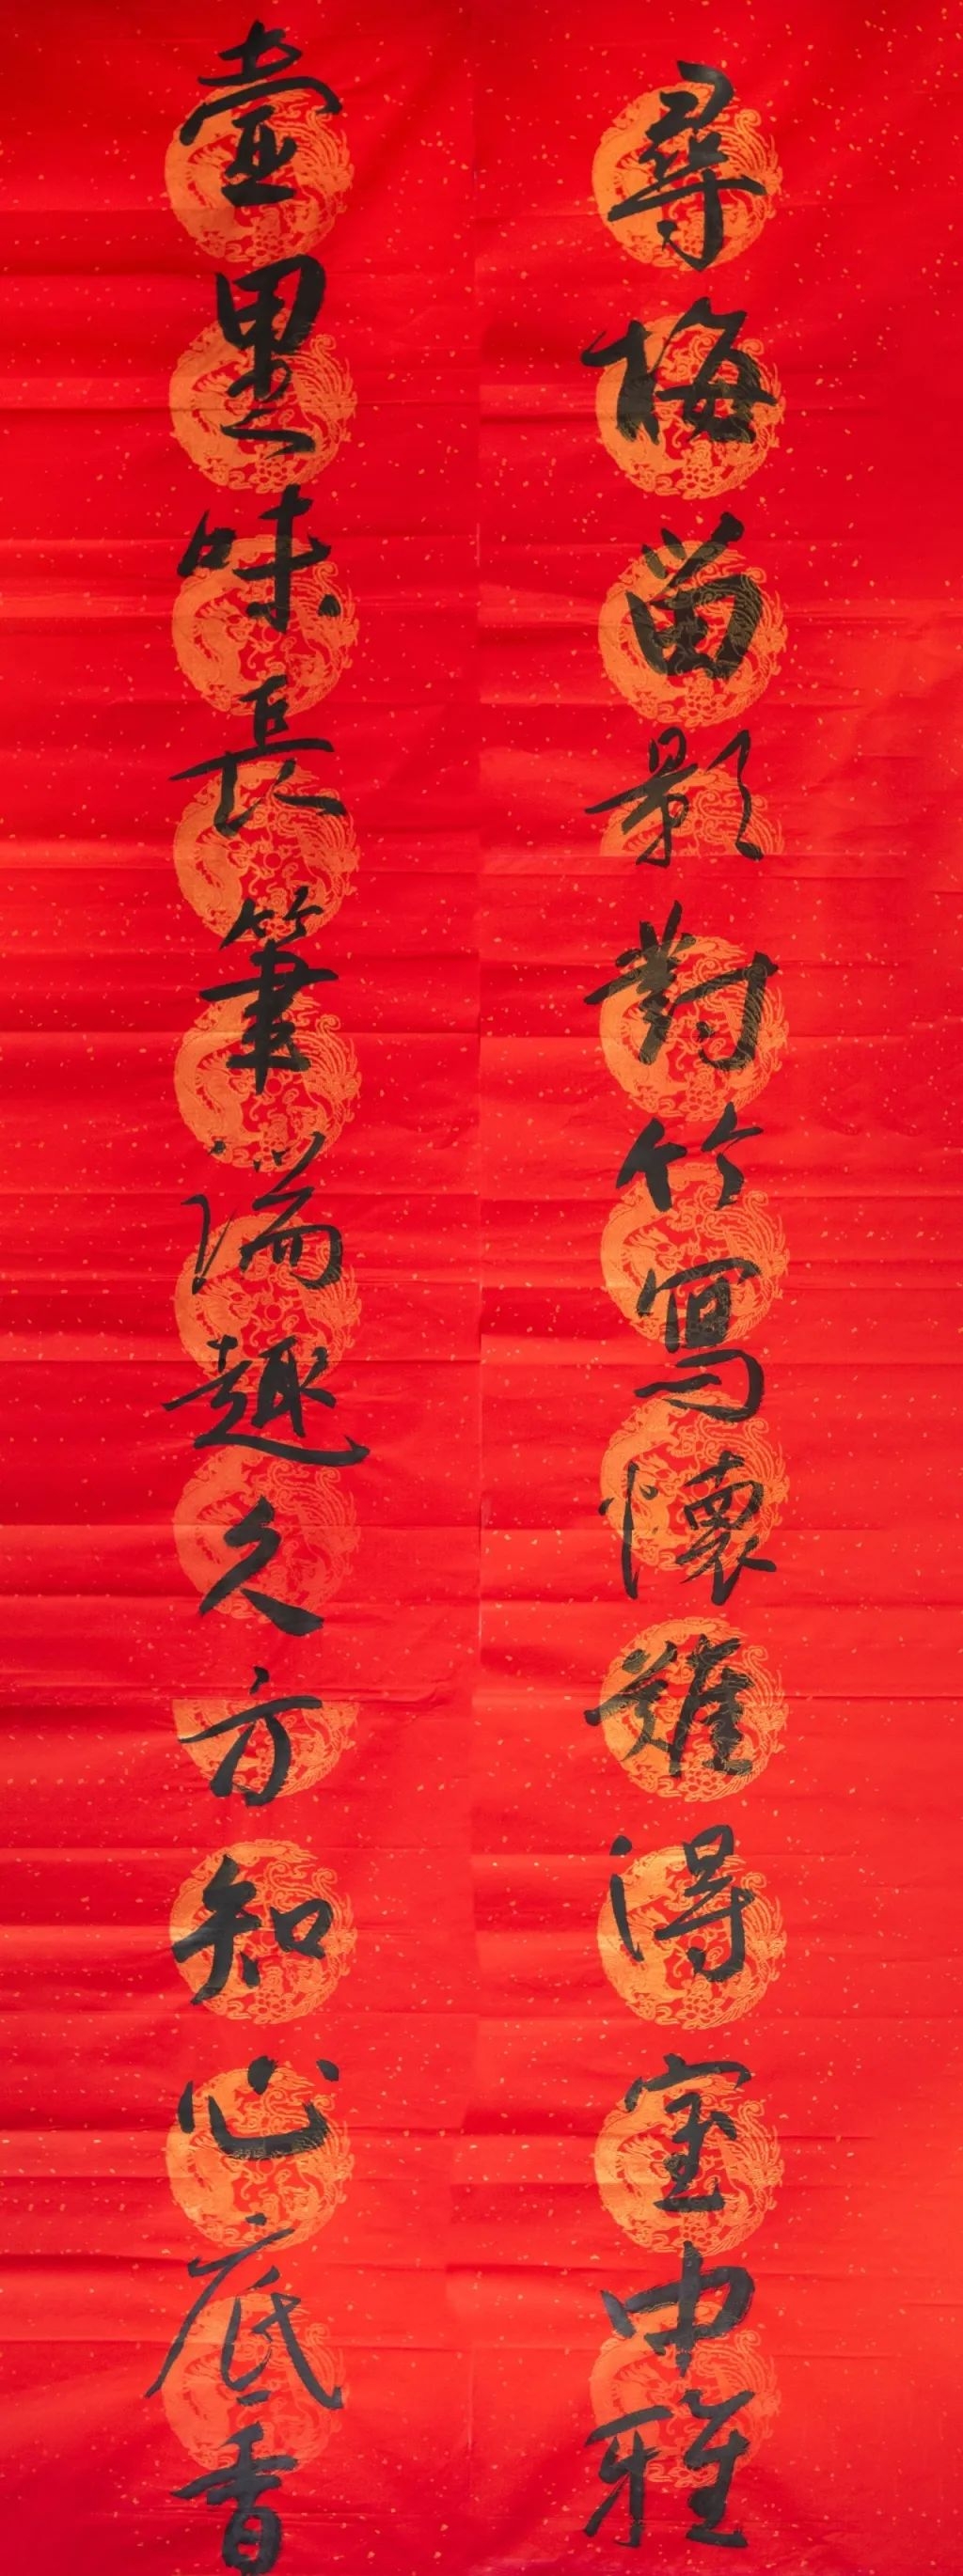 尋梅留影對竹寫懷難得室中雅
壺里味長筆端趣久方知心底香